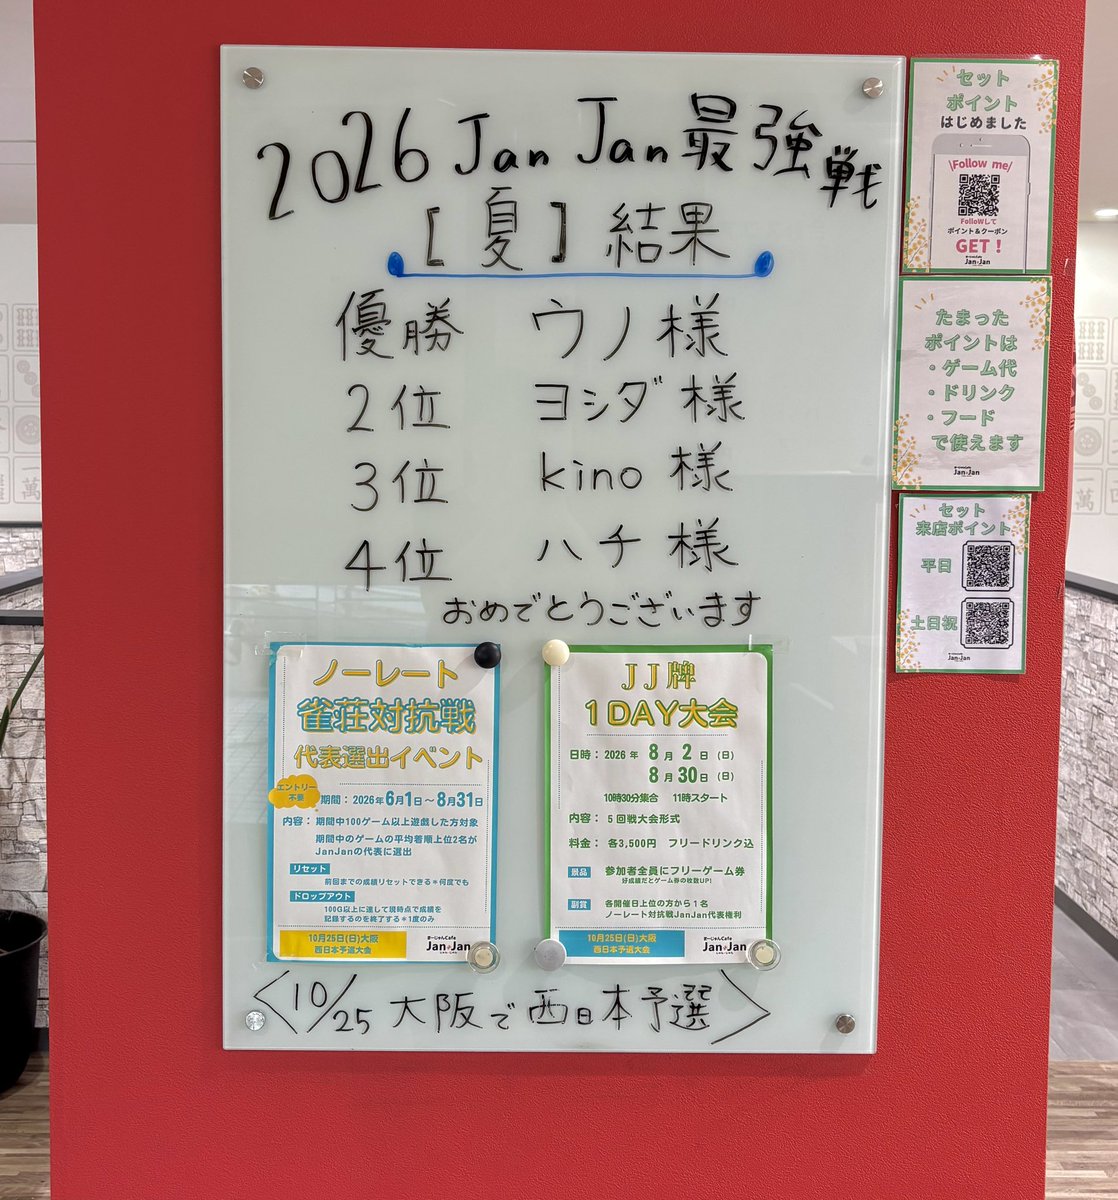 2026 Jan Jan最強戦
[夏] 結果
優勝 ウノ様
2位 ヨシダ様
3位 kino様
4位 ハチ様
おめでとうございます
ノーレート
雀荘対抗戦
代表選出イベント
エントリー
不要
期間：2026年6月1日～8月31日
内容：期間中100ゲーム以上遊戯した方対象
期間中のゲームの平均着順上位2名が
JanJanの代表に選出
リセット
前回までの成績リセットできる＊何度でも
ドロップアウト
100G以上に達して現時点で成績を
記録するのを終了する＊1度のみ
10月25日(日)大阪
西日本予選大会
まーじゃんCafe
Jan*Jan
JJ牌
1DAY大会
日時：2026年 8月 2日（日）
8月30日（日）
10時30分集合 11時スタート
内容：5回戦大会形式
料金：各3,500円 フリードリンク込
景品 参加者全員にフリーゲーム券
好成績だとゲーム券の枚数UP!
副賞 各開催日上位の方から1名
ノーレート対抗戦JanJan代表権利
10月25日(日)大阪
西日本予選大会
まーじゃんCafe
Jan*Jan
<10/25 大阪で西日本予選>
セット
ポイント
はじめました
\Follow me/
FolloWして
ポイント＆クーポン
GET！
まーじゃんCafe
Jan*Jan
たまった
ポイントは
・ゲーム代
・ドリンク
・フード
で使えます
まーじゃんCafe
Jan*Jan
セット
来店ポイント
平日
土日祝
まーじゃんCafe
Jan*Jan